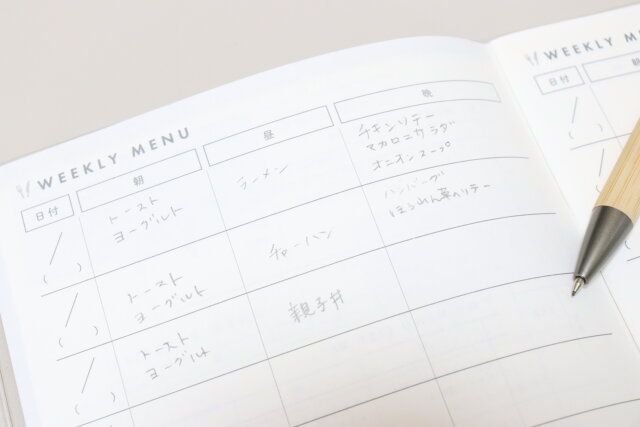 WEEKLY MENU
日付
朝
昼
晩
/
( )
トースト
ヨーグルト
ラーメン
チキンソテー
マカロニサラダ
オニオンスープ
/
( )
トースト
ヨーグルト
チャーハン
ハンバーグ
ほうれん草ソテー
/
( )
トースト
ヨーグルト
親子丼
WEEKLY MENU
日付
朝
/
( )
/
( )